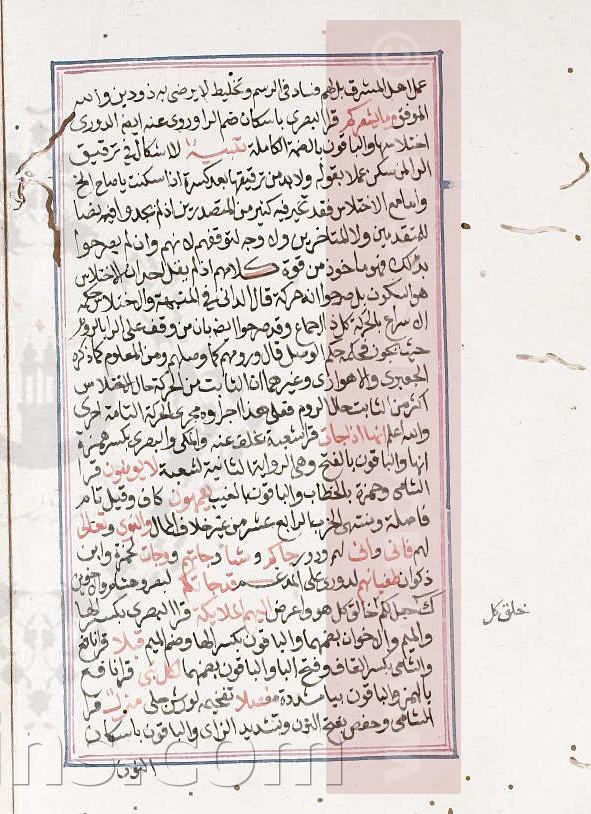 عمل اهل المشرق بل لهم فساد فى الرسم وتخليط لا يرضى به ذو دين والله
الموفق وما يشعركم قرا البصرى باسكان ضم الرا وروى عنه ايضا الدورى
اختلاسها والباقون بالضمة الكاملة تنبيه لا اشكال فى ترقيق
الرا لمن سكن عملا بقوله ولا بد من ترقيقها بعد كسرة اذا سكنت يا صاح الخ
واما مع الاختلاس فقد تحير فيه كثير من المتصدرين اذ لم يجدوا فيه نصا
للمتقدمين ولا للمتاخرين ولا وجه لتوقفهم لانهم وان لم يصرحوا
بذلك فهو ماخوذ من قوة كلامهم اذ لم يقل احد ان الاختلاس
هو السكون بل صرحوا انه حركة قال الدانى فى المنبهة والاختلاس حكمه
الاسراع بالحركة كل ذا اجماع وقد صرحوا ايضا بان من وقف على الرا بالروم
حيث تكون فى حكم الوصل قال ورومهم كما وصلهم ومن المعلوم كما ذكره
الجعبرى والاهوازى وغيرهما ان الثابت من الحركة حال الاختلاس
اكثر من الثابت حال الروم فعلى هذا اجراؤه مجرى الحركة التامة احرى
والله اعلم انها اذا جات قرا شعبة بخلف عنه والمكى والبصرى بكسر همزة
انها والباقون بالفتح وهى الرواية الثانية لشعبة لا يؤمنون قرا
الشامى وحمزة بالخطاب والباقون بالغيب يعمهون كاف وقيل تام
فاصلة ومنتهى الحزب الرابع عشر من غير خلاف الممال والنوى وتعالى
لهم فانى وانى لهم ودورى جاكم وشا وجاتهم وجات لحمزة وابن
ذكوان طغيانهم لدورى على المدغم قد جاكم لبصرى وهشام والاخوين
ك جعل لكم خالق كل هو واعرض اليهم الملايكة قرا البصرى بكسر الها
والميم والاخوان بضمهما والباقون بكسر الها وضم الميم قبلا قرا نافع
والشامى بكسر القاف وفتح البا والباقون بضمهما لكل نبى قرا نافع
بالهمز والباقون بيا مشددة مفصلا تفخيمه لورش جلى منزل قرا
الشامى وحفص بفتح النون وتشديد الزاى والباقون باسكان
النون
خلق كل
ns.com